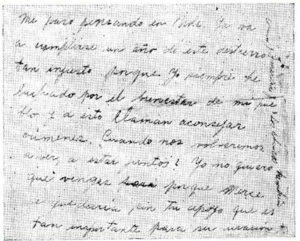 Me paso pensando en Uds. Ya va
a cumplirse un año de este destierro
tan injusto porque yo siempre he
luchado por el bienestar de mi pue
blo y a esto llaman aconsejar
crímenes. Cuando nos volveremos
a ver, a estar juntos! Yo no quiero
que vengas porque Merce
se quedaría sin tu apoyo que es
tan importante para su